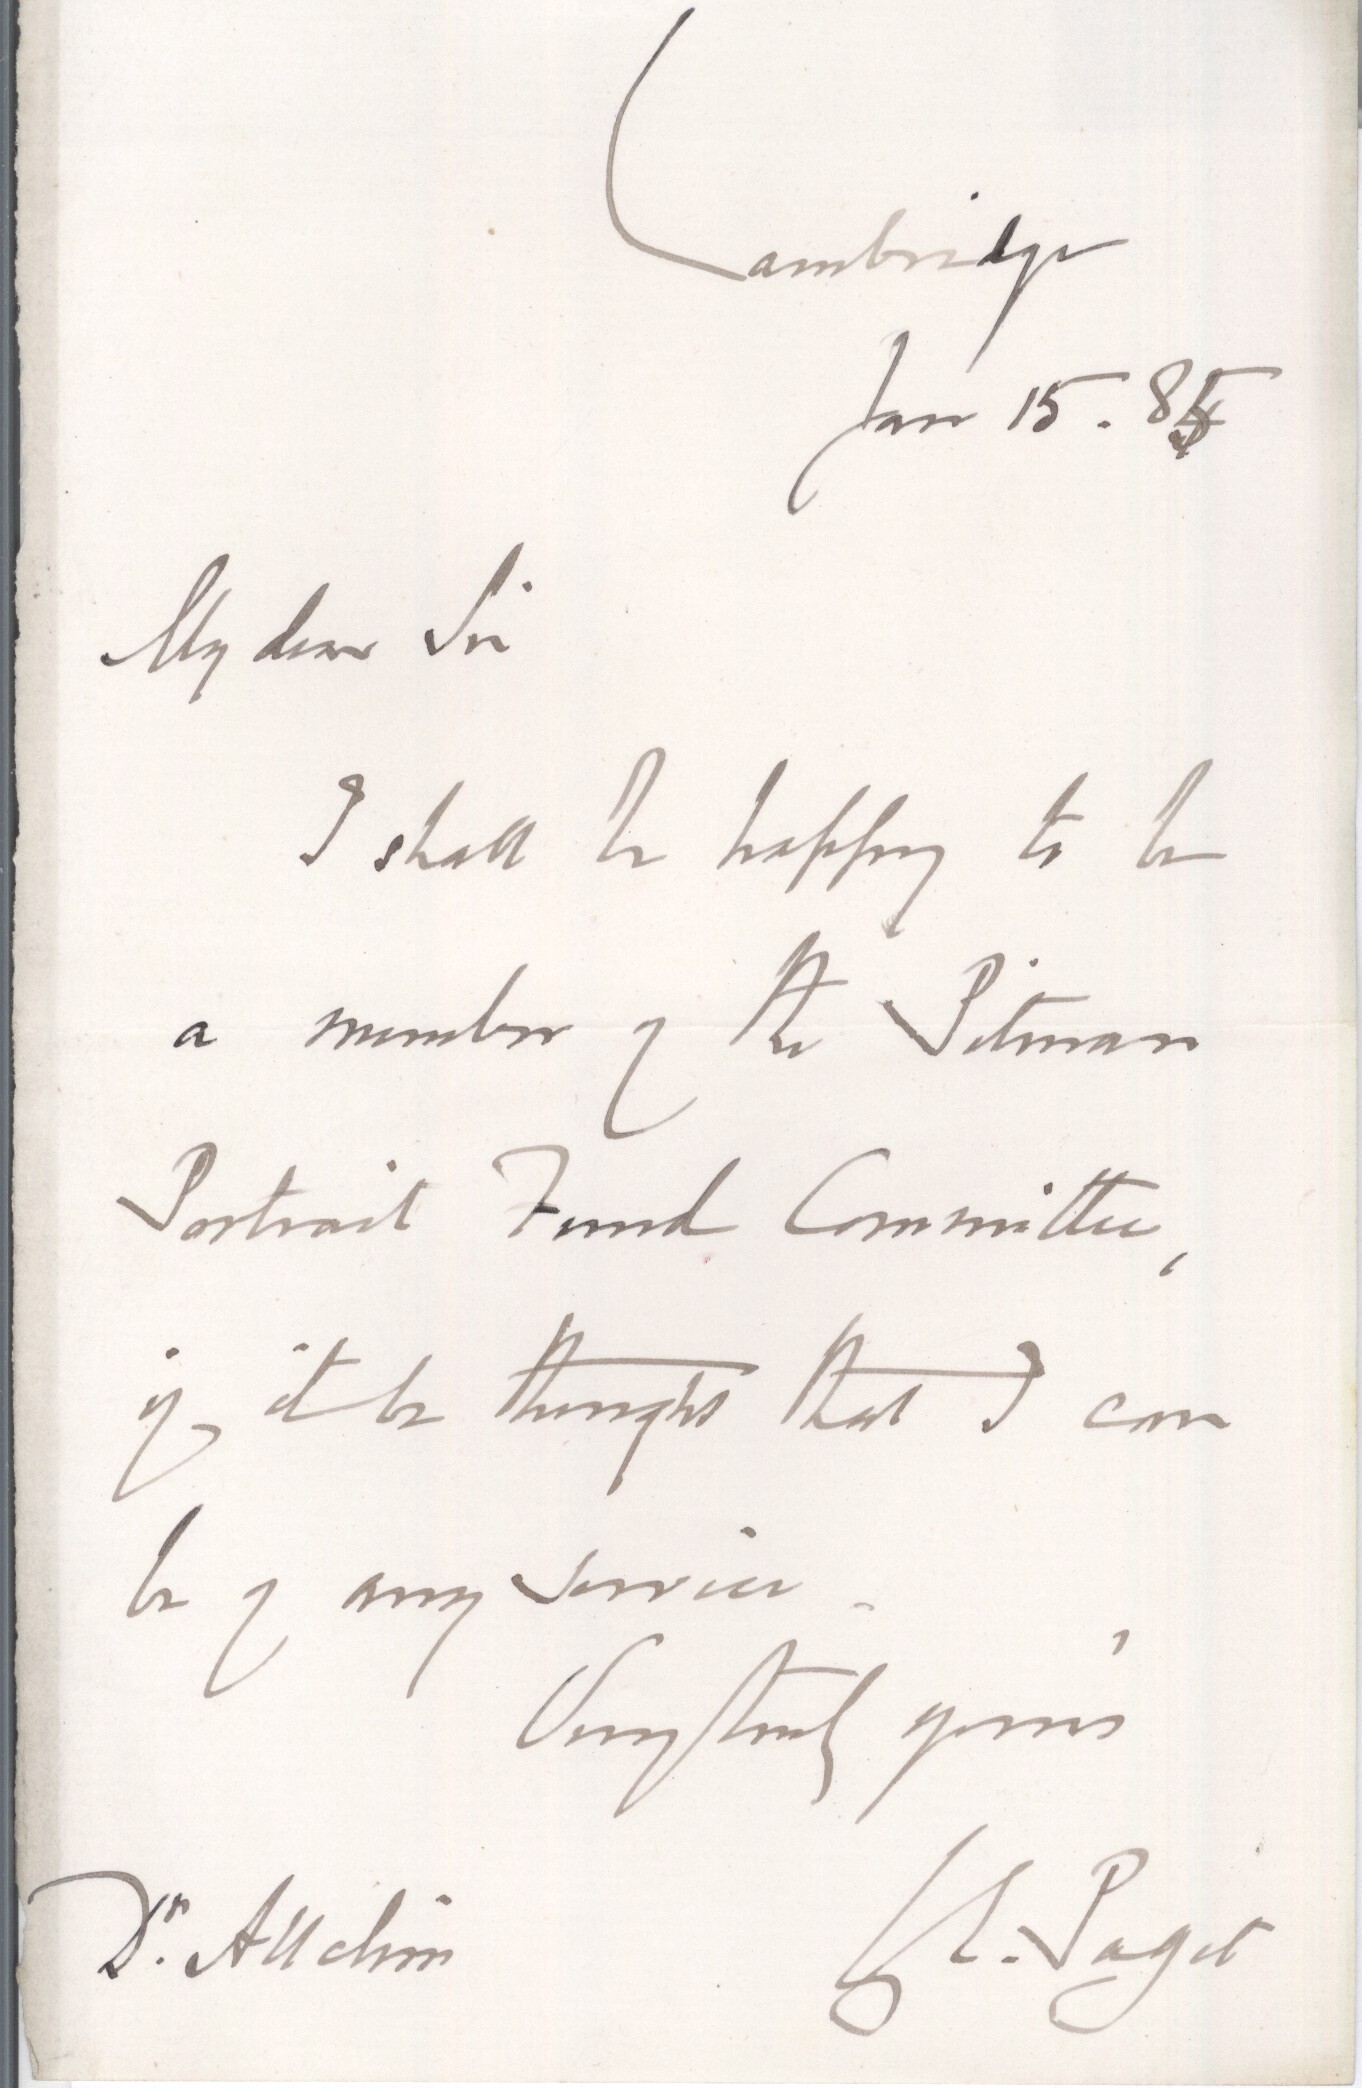 Cambridge
Jan 15. 85
My dear Sir
I shall be happy to be
a member of the Pitman
Portrait Fund Committee,
if it be thought that I can
be of any service.
Very truly yours
G. E. Paget
Dr. Allchin